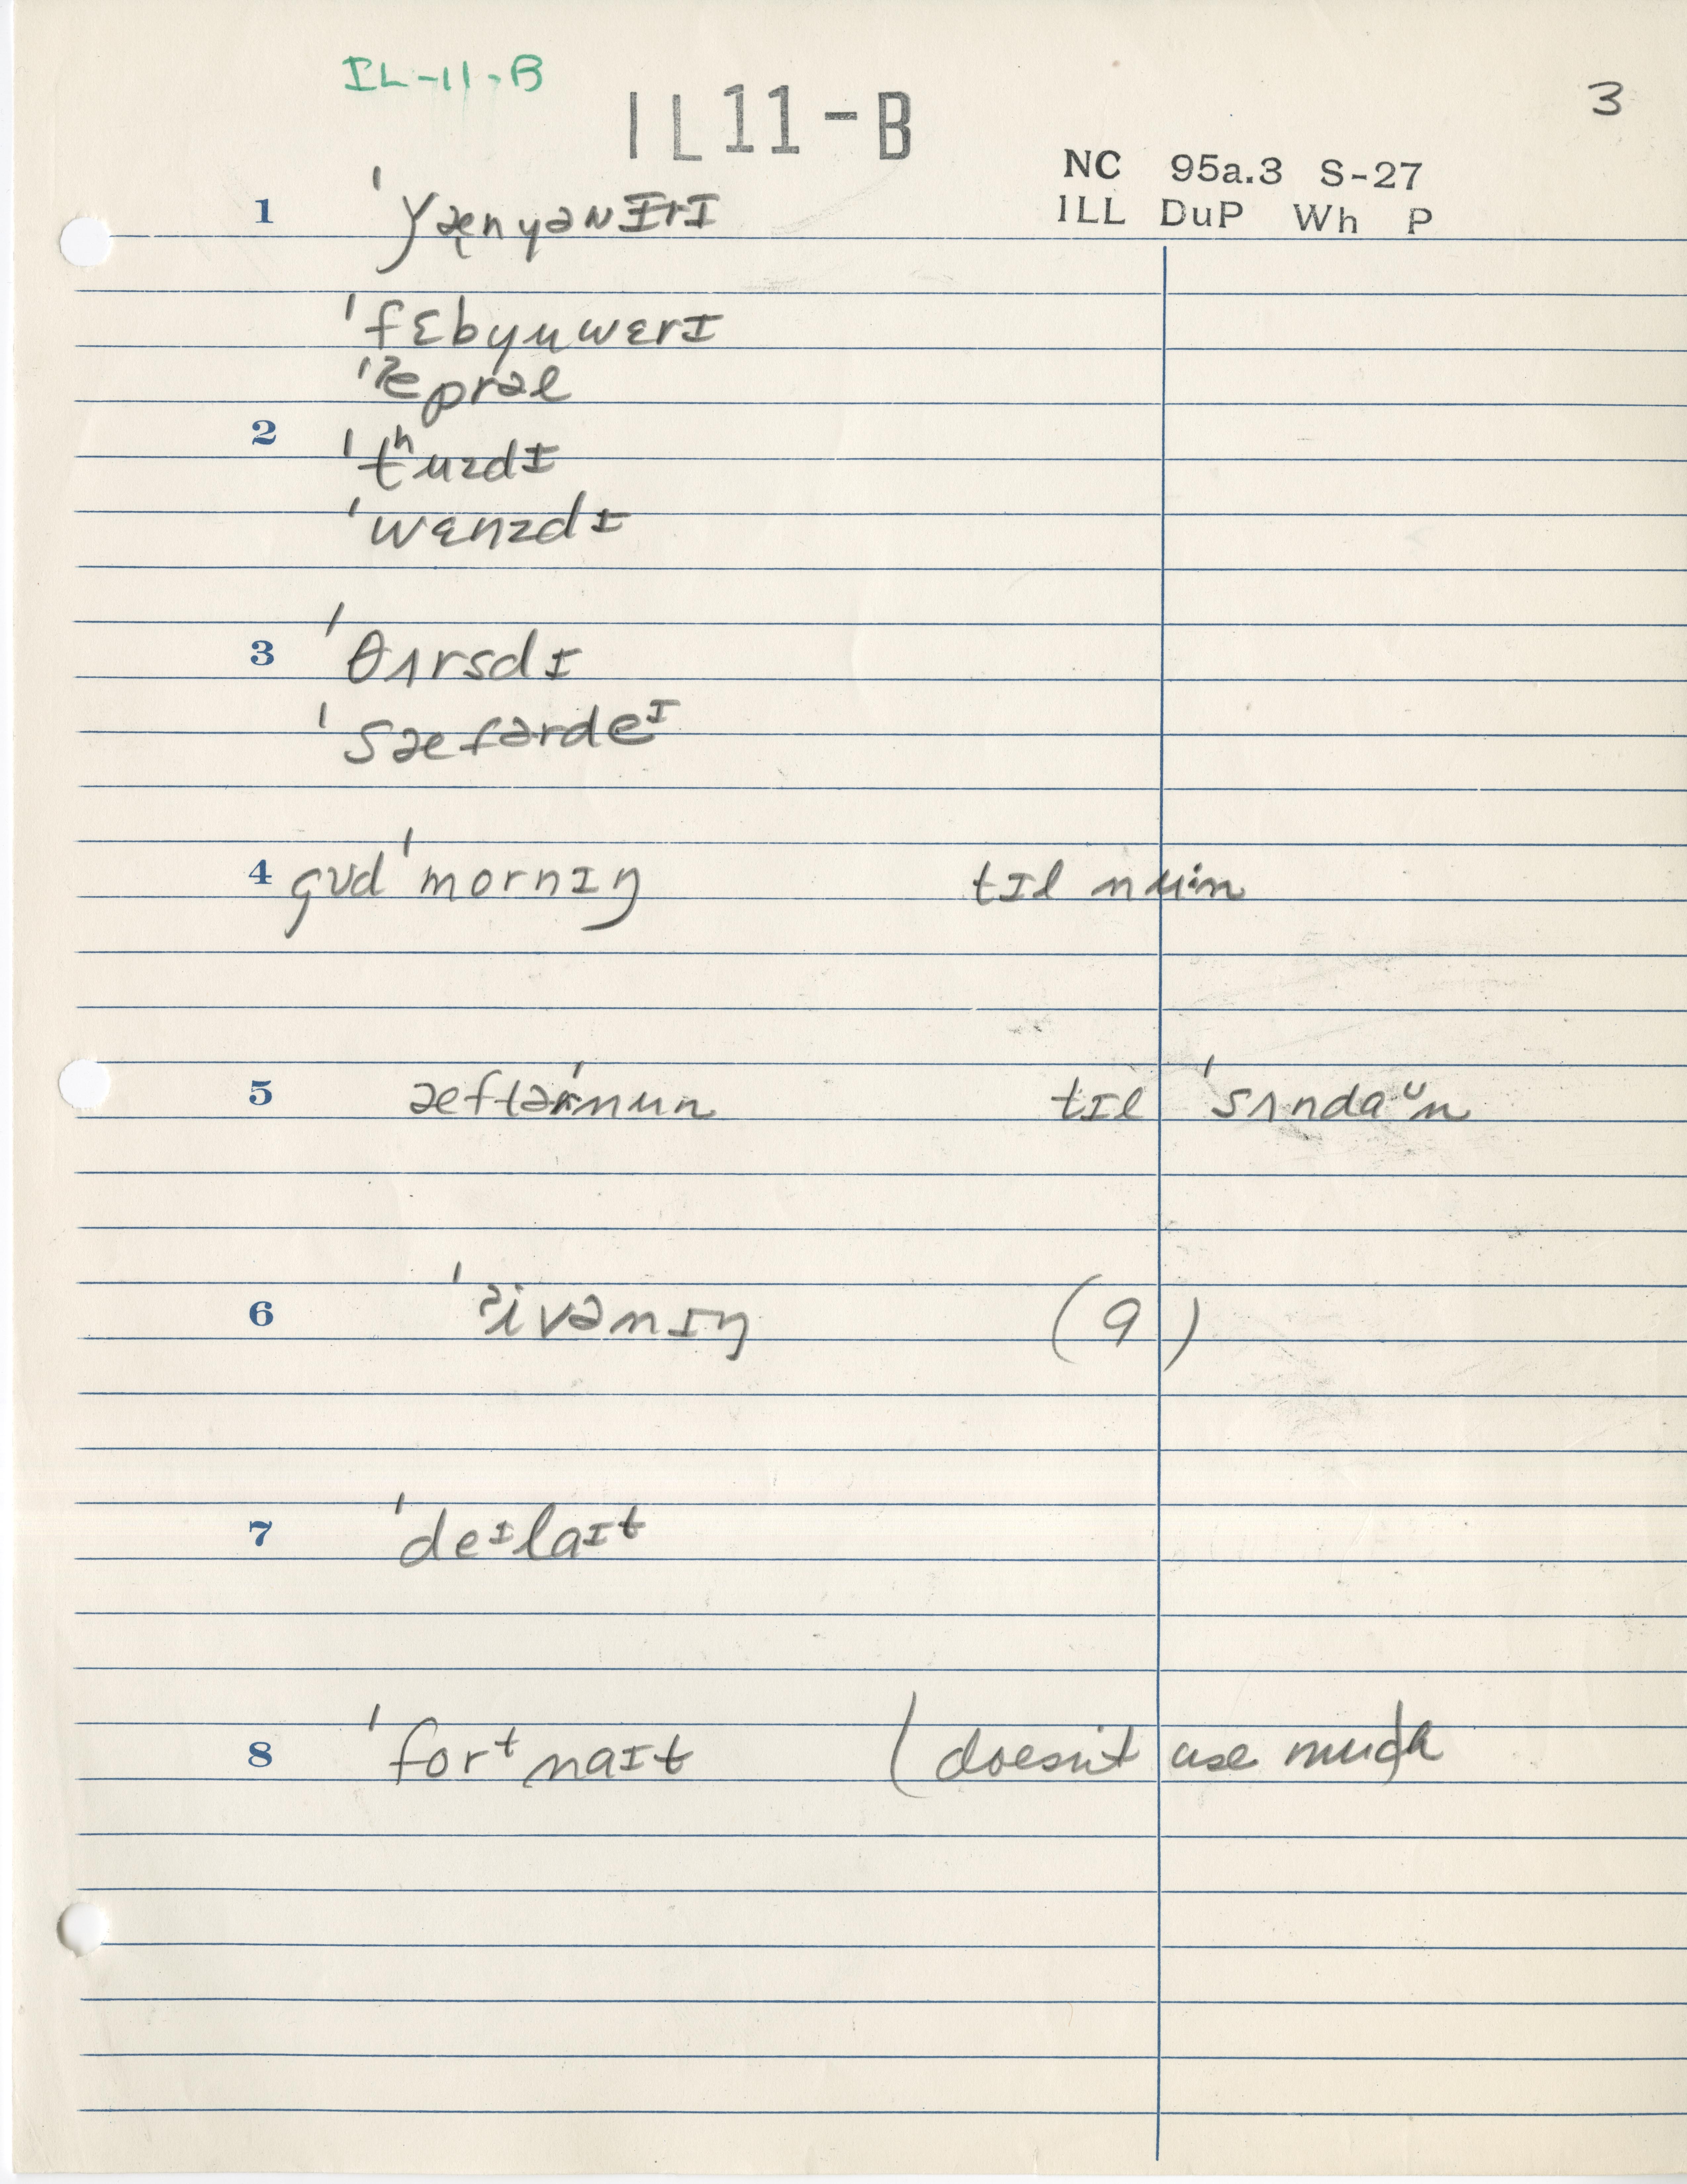 IL-11-B
IL11-B
3
NC 95a.3 S-27
ILL DuP Wh P
1 ˈyænyəwɪrɪ
ˈfɛbyuwɛrɪ
ˈʔeprəl
2 ˈtʰuzdɪ
ˈwɛnzdɪ
3 ˈθʌrsdɪ
ˈsæfərdeᴵ
4 gʊdˈmornɪŋ tɪl nu:n
5 æftərˈnun tɪl ˈsʌndaᵁn
6 ˈʔivənɪŋ (9)
7 ˈdeᴵlaɪt
8 ˈforᵗnaɪt (doesn't use much)